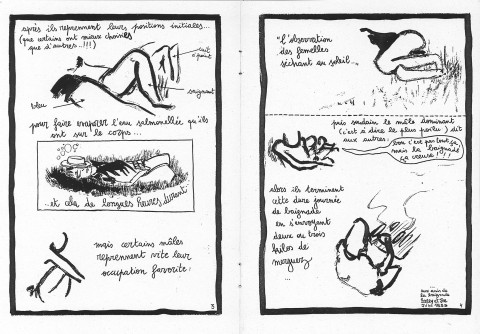 après ils reprennent leurs positions initiales...
(que certains ont mieux choisies
que d'autres..!!!)
cuit
à point
saignant
bleu
pour faire évaporer l'eau salmonellée qu'ils
ont sur le corps...
...et cela de longues heures durant.
mais certains mâles
reprennent vite leur
occupation favorite:
3
"l'observation
des femelles
séchant au soleil...
puis soudain le mâle dominant
(c'est à dire le plus poilu) dit
aux autres:
bon c'est pas tout ça
mais la baignade
ça creuse!!!
alors ils terminent
cette dure journée
de baignade
en s'envoyant
deux ou trois
kilos de
merguez...
la baignade
4